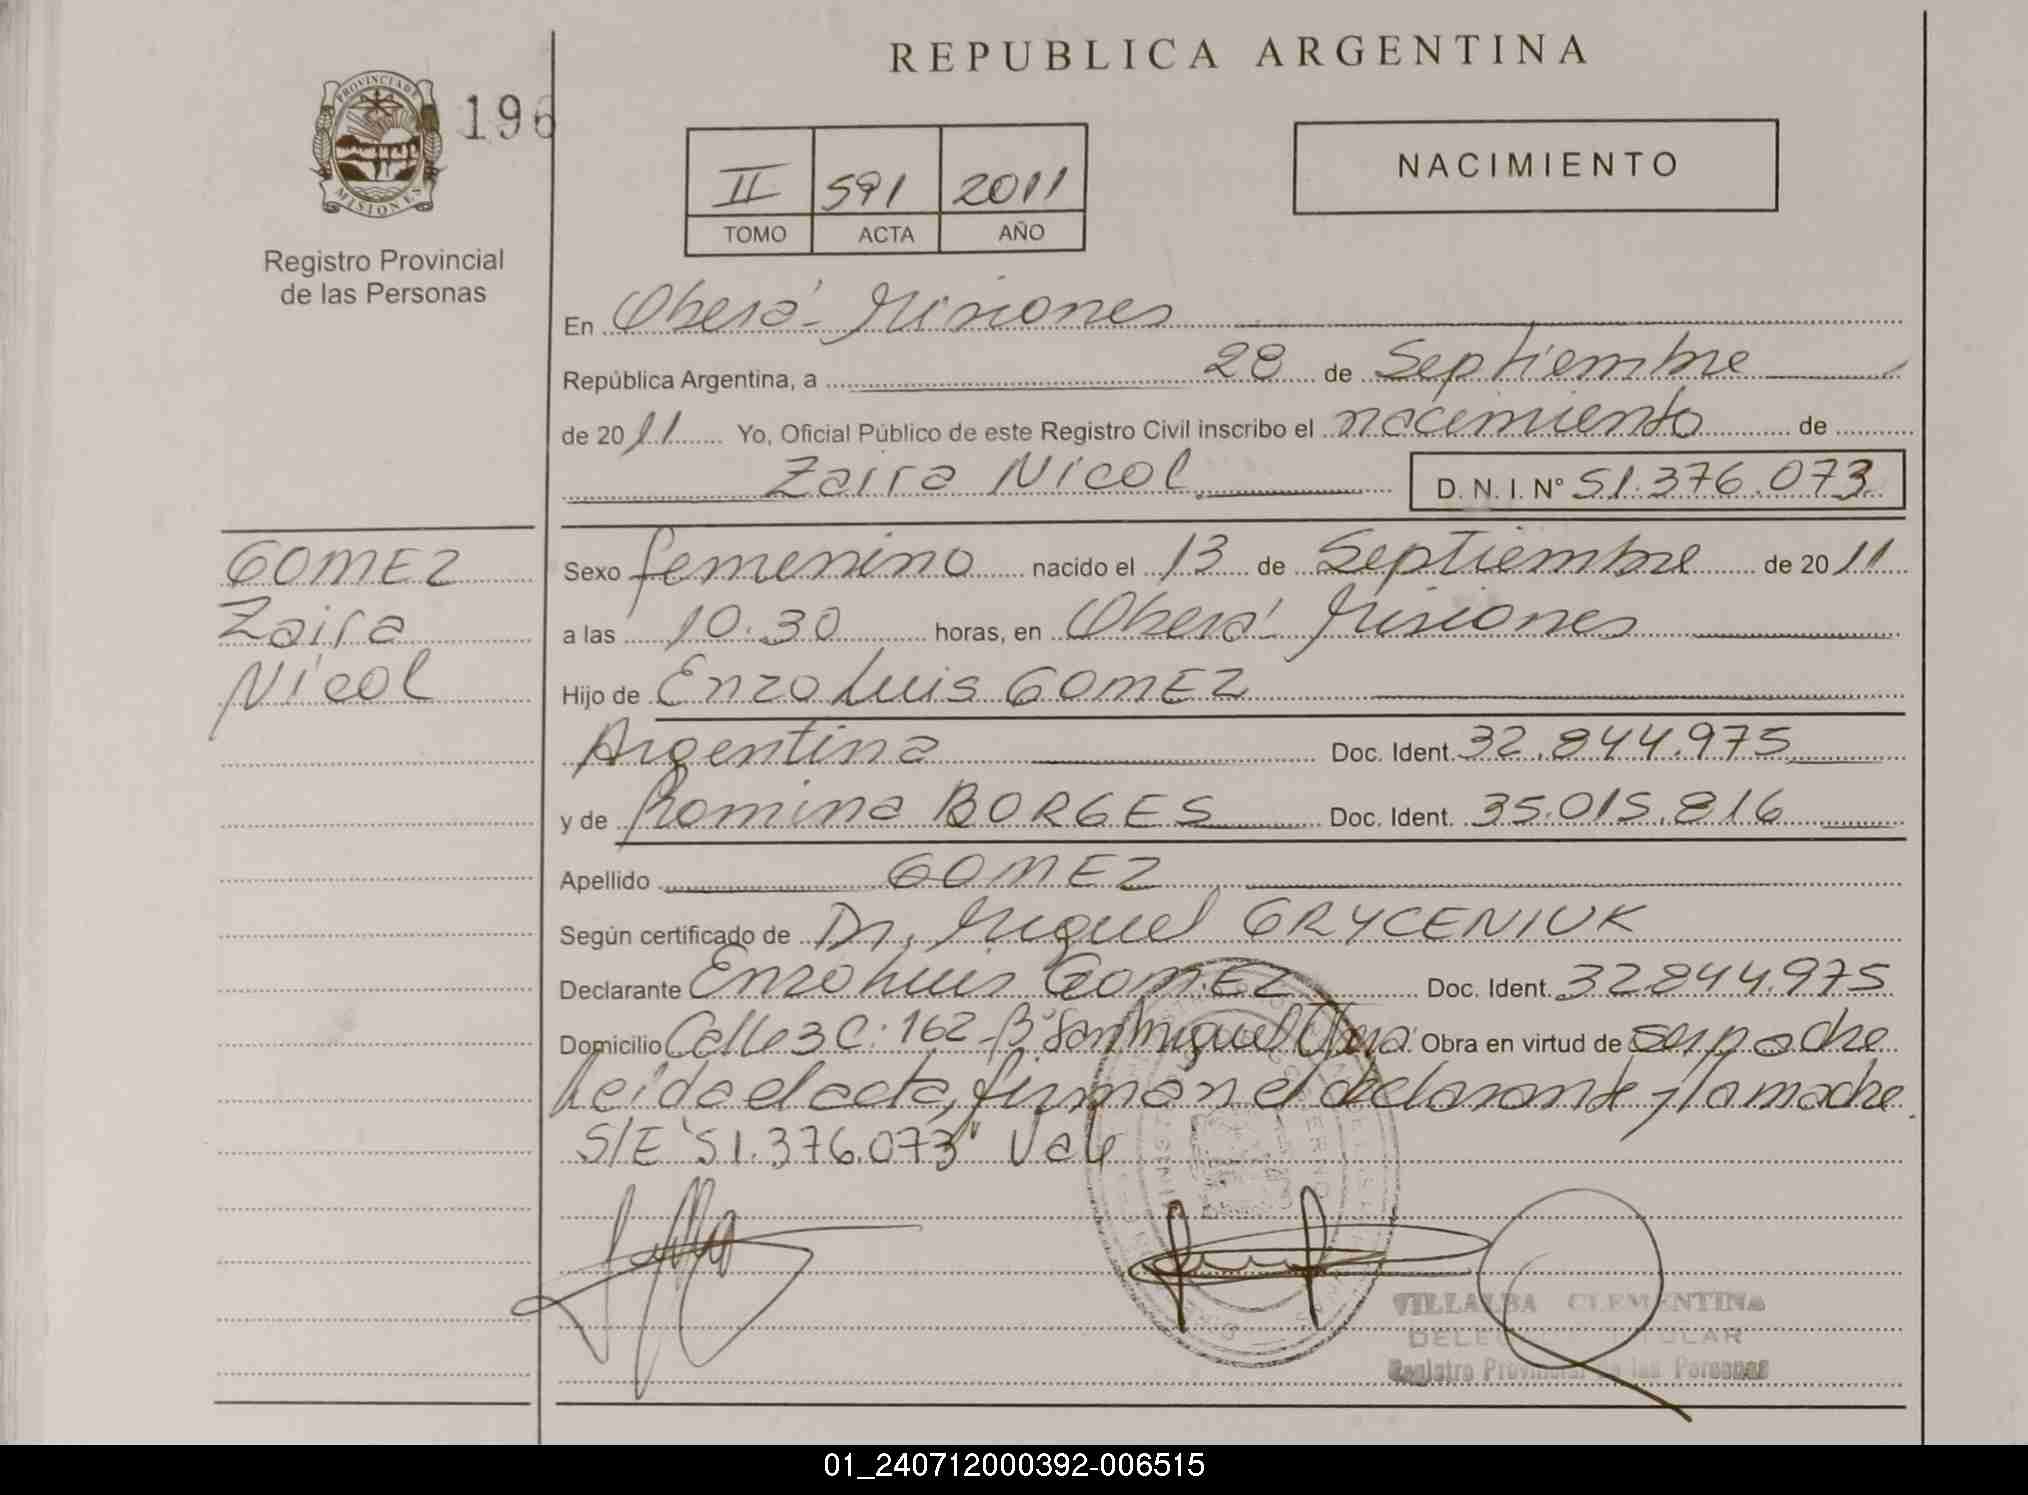 REPUBLICA ARGENTINA
PROVINCIA DE
MISIONES
196
Registro Provincial
de las Personas
II 591 2011
TOMO ACTA AÑO
NACIMIENTO
En Oberá - Misiones
República Argentina, a 28 de Septiembre
de 2011 Yo, Oficial Público de este Registro Civil inscribo el nacimiento de
Zaira Nicol D. N. I. Nº 51.376.073
GOMEZ
Zaira
Nicol
Sexo femenino nacido el 13 de Septiembre de 2011
a las 10.30 horas, en Oberá - Misiones
Hijo de Enzo Luis GOMEZ
Argentina Doc. Ident. 32.844.975
y de Romina BORGES Doc. Ident. 35.015.816
Apellido GOMEZ
Según certificado de Dr. Miguel GRYCENIUK
Declarante Enzo Luis GOMEZ Doc. Ident. 32.844.975
Domicilio Calle 3 C. 162 - Bº San Miguel Oberá Obra en virtud de ser padre
Leida el acta, firman el declarante y la madre.
S/E "51.376.073" Vale
VILLALBA CLEMENTINA
DELEGADA TITULAR
Registro Provincial de las Personas
01_240712000392-006515